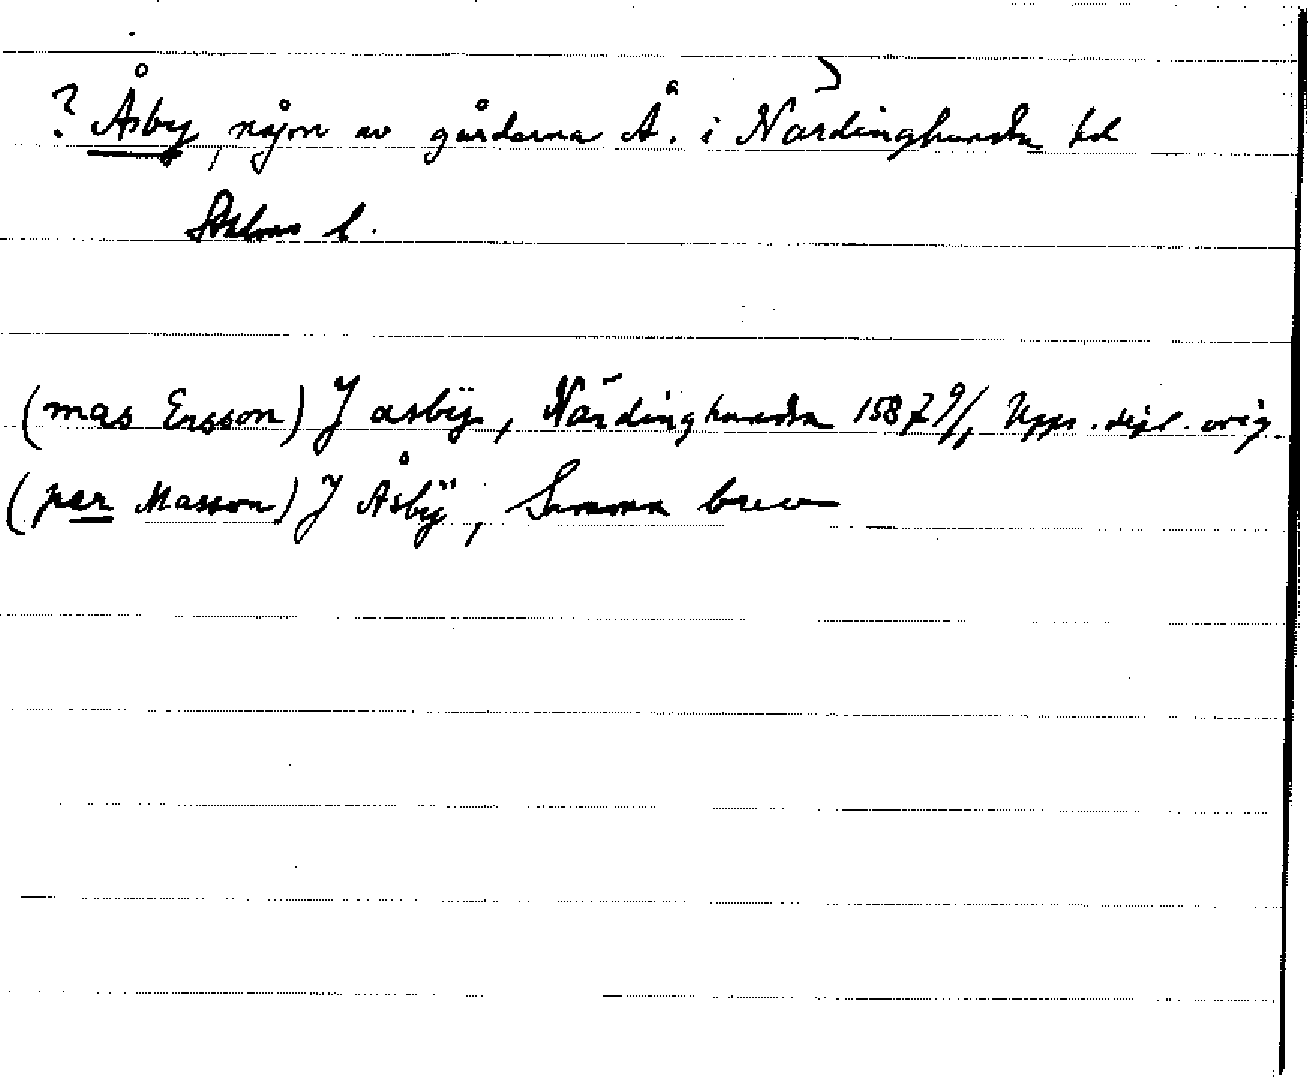 ? Åsby, någon av gårdarna Å. i Närdinghundra hd
Sthlms l.
(mas Ersson) J asbÿ, Närdinghundra 1587 9/1 Upps. dipl. orig.
(per Masson) J Åsbÿ, Samma brev